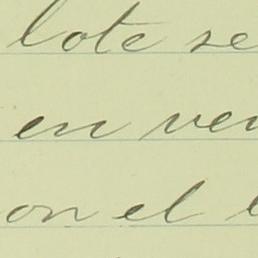 lote se
en ven
on el